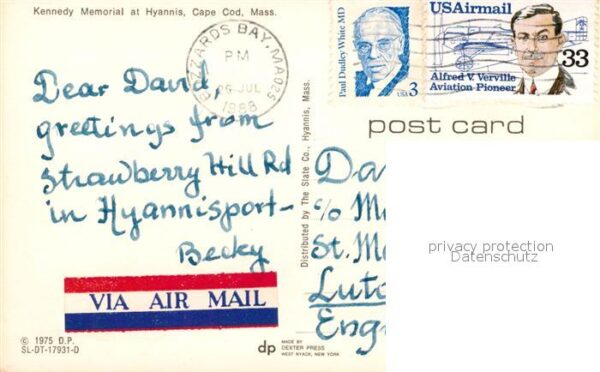 Kennedy Memorial at Hyannis, Cape Cod, Mass.
BUZZARDS BAY. MA 025
PM
06 JUL
1988
Paul Dudley White MD
USA 3
USAirmail
33
Alfred V. Verville
Aviation Pioneer
post card
Dear David,
greetings from
Strawberry Hill Rd
in Hyannisport-
Becky
VIA AIR MAIL
© 1975 D.P.
SL-DT-17931-D
Distributed by The State Co., Hyannis, Mass.
dp
MADE BY
DEXTER PRESS
WEST NYACK, NEW YORK
Da
c/o M
St. M
Luto
Eng
privacy protection
Datenschutz